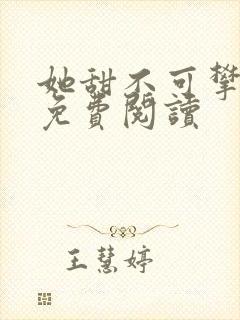 她甜不可攀
免費閱讀
王慧婷